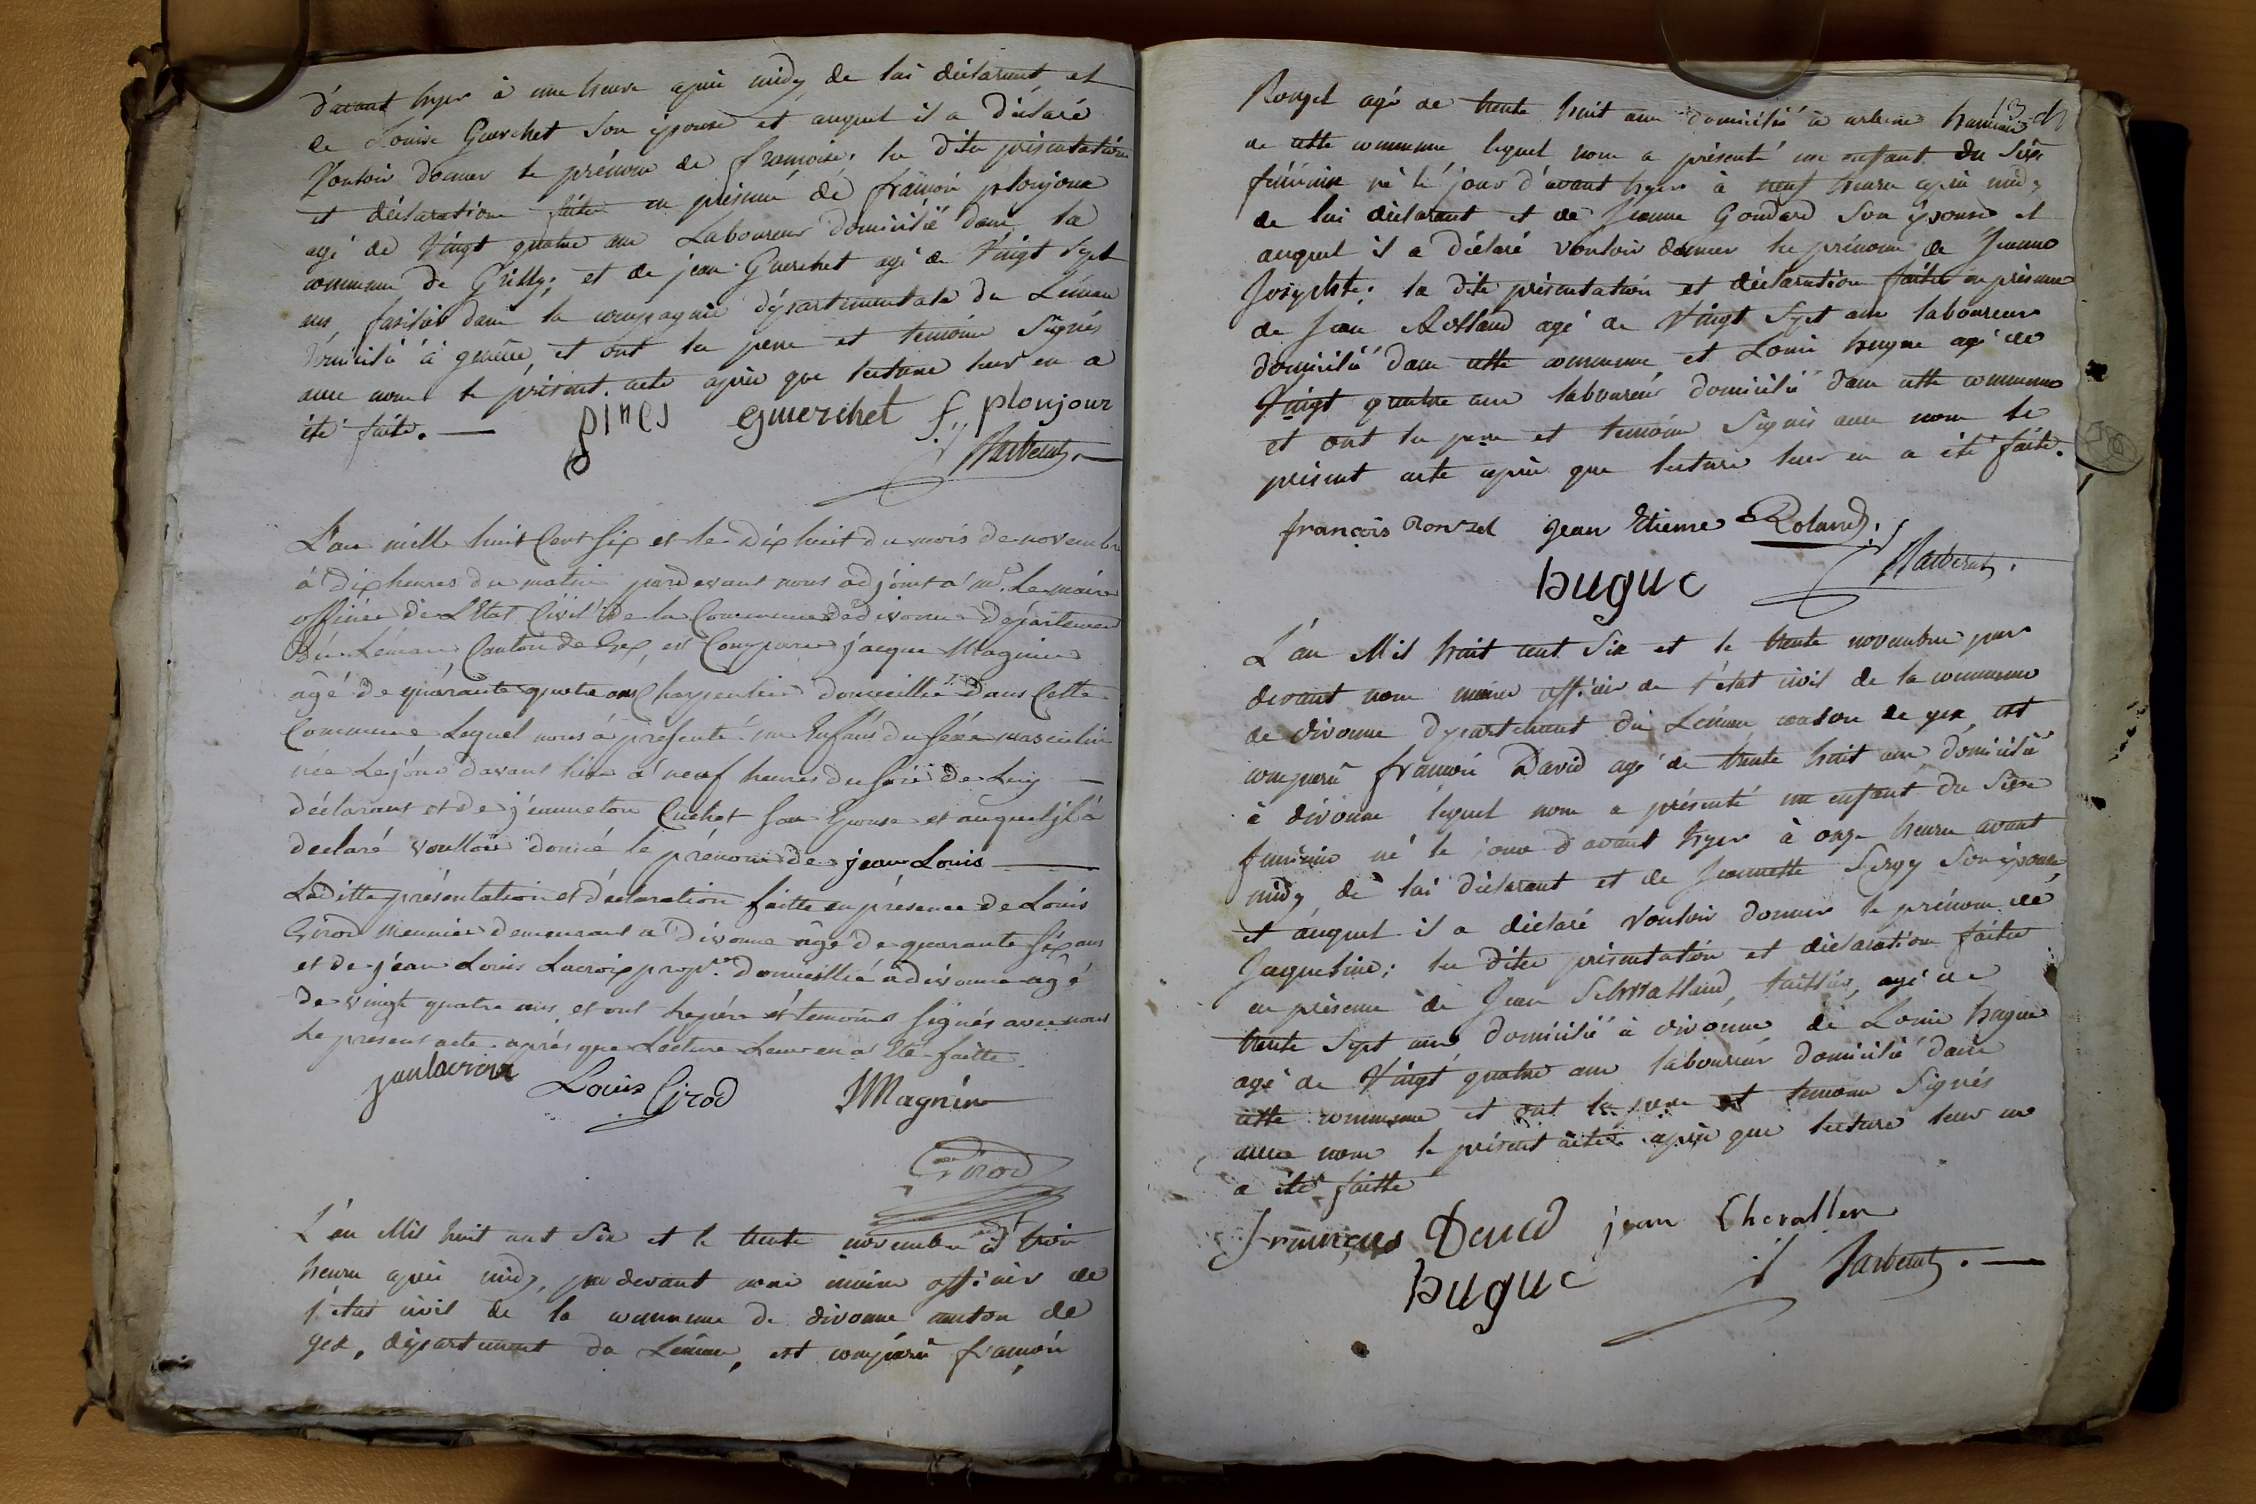 d'avant hyer à une heure après midy de lui déclarant et
de Louise Guerchet son épouse et auquel il a déclaré
Vouloir donner le prénom de francoise. les dites présentation
et déclaration faites en présence de françois plonjoux
agé de Vingt quatre ans Laboureur domicilié dans la
commune de Grilly; et de jean Guerchet agé de Vingt Sept
ans, fusilier dans la compagnie départementale du Léman
domicilié à genève, et ont les pere et temoins Signés
avec nous le présent acte après que lecture leur en a
été faite. —
pinel guerchet f plonjour
L'an mille huit Cent Six et le Dix huit du mois de novembre
à Dix heures du matin pardevant nous adjoint a mr. Le maire
officier de L'Etat Civil de la Commune de divonne Département
du Léman, Canton de Gex, est Comparu jacque Magnin
agé de quarante quatre ans Charpentier domeicillié dans Cette
Commune Lequel nous à présenté un Enfant du séxe masculin
née Le jour davant hier a neuf heures du soir de Luy —
déclarant et de jeanneton Cuchet son Epouse et auquel il à
declaré voulloir donné le prénom de jean Louis —
Laditte présentation et déclaration faitte en présence de Louis
Girod Meunier demeurant a Divonne âgé de quarante six ans
et de jean Louis Lacroix propre. domeicillié a divonne agé
de vingt quatre ans et ont le père et temoins signés avec nous
le présent acte après que Lecture Leur en a Eté faitte.
jean lacroix Louis Girod JMagnin
Girod
L'an Mil huit cent Six et le trente novembre à trois
heures après midy, par devant nous maire officier de
l'état civil de la commune de divonne canton de
gex, département du Léman, est comparu françois
13
Rouzet agé de trente huit ans domicilié à arbere hameau
de cette commune lequel nous a présenté un enfant du Sexe
féminin né le jour d'avant hyer à neuf heures après midy
de lui déclarant et de Jeanne Goudard son épouse et
auquel il a déclaré vouloir donner les prénoms de Jeanne
Josephte; les dites présentation et déclaration faites en présence
de Jean Rolland agé de Vingt Sept ans laboureur
domicilié dans cette commune, et Louis hugue agé de
Vingt quatre ans laboureur domicilié dans cette commune
et ont les pere et temoins Signés avec nous le
présent acte après que lecture leur en a été faite.
françois Ronzel Jean Etienne Roland.
hugue
L'an Mil huit cent Six et le trente novembre par
devant nous maire officier de l'état civil de la commune
de divonne département du Léman canton de gex, est
comparu françois David agé de trente huit ans domicilié
à divonne lequel nous a présenté un enfant du Sexe
féminin né le jour d'avant hyer à onze heures avant
midy de lui déclarant et de Jeannette Sergy son épouse
et auquel il a déclaré Vouloir donner le prénom de
Jaqueline; les dites présentation et déclaration faites
en présence de Jean tailleur, agé de
trente Sept ans domicilié à divonne de Louis hugue
agé de Vingt quatre ans laboureur domicilié dans
cette commune et ont les pere et temoins Signés
avec nous le présent acte après que lecture leur en
a été faitte
François David jean Chevallier
hugue